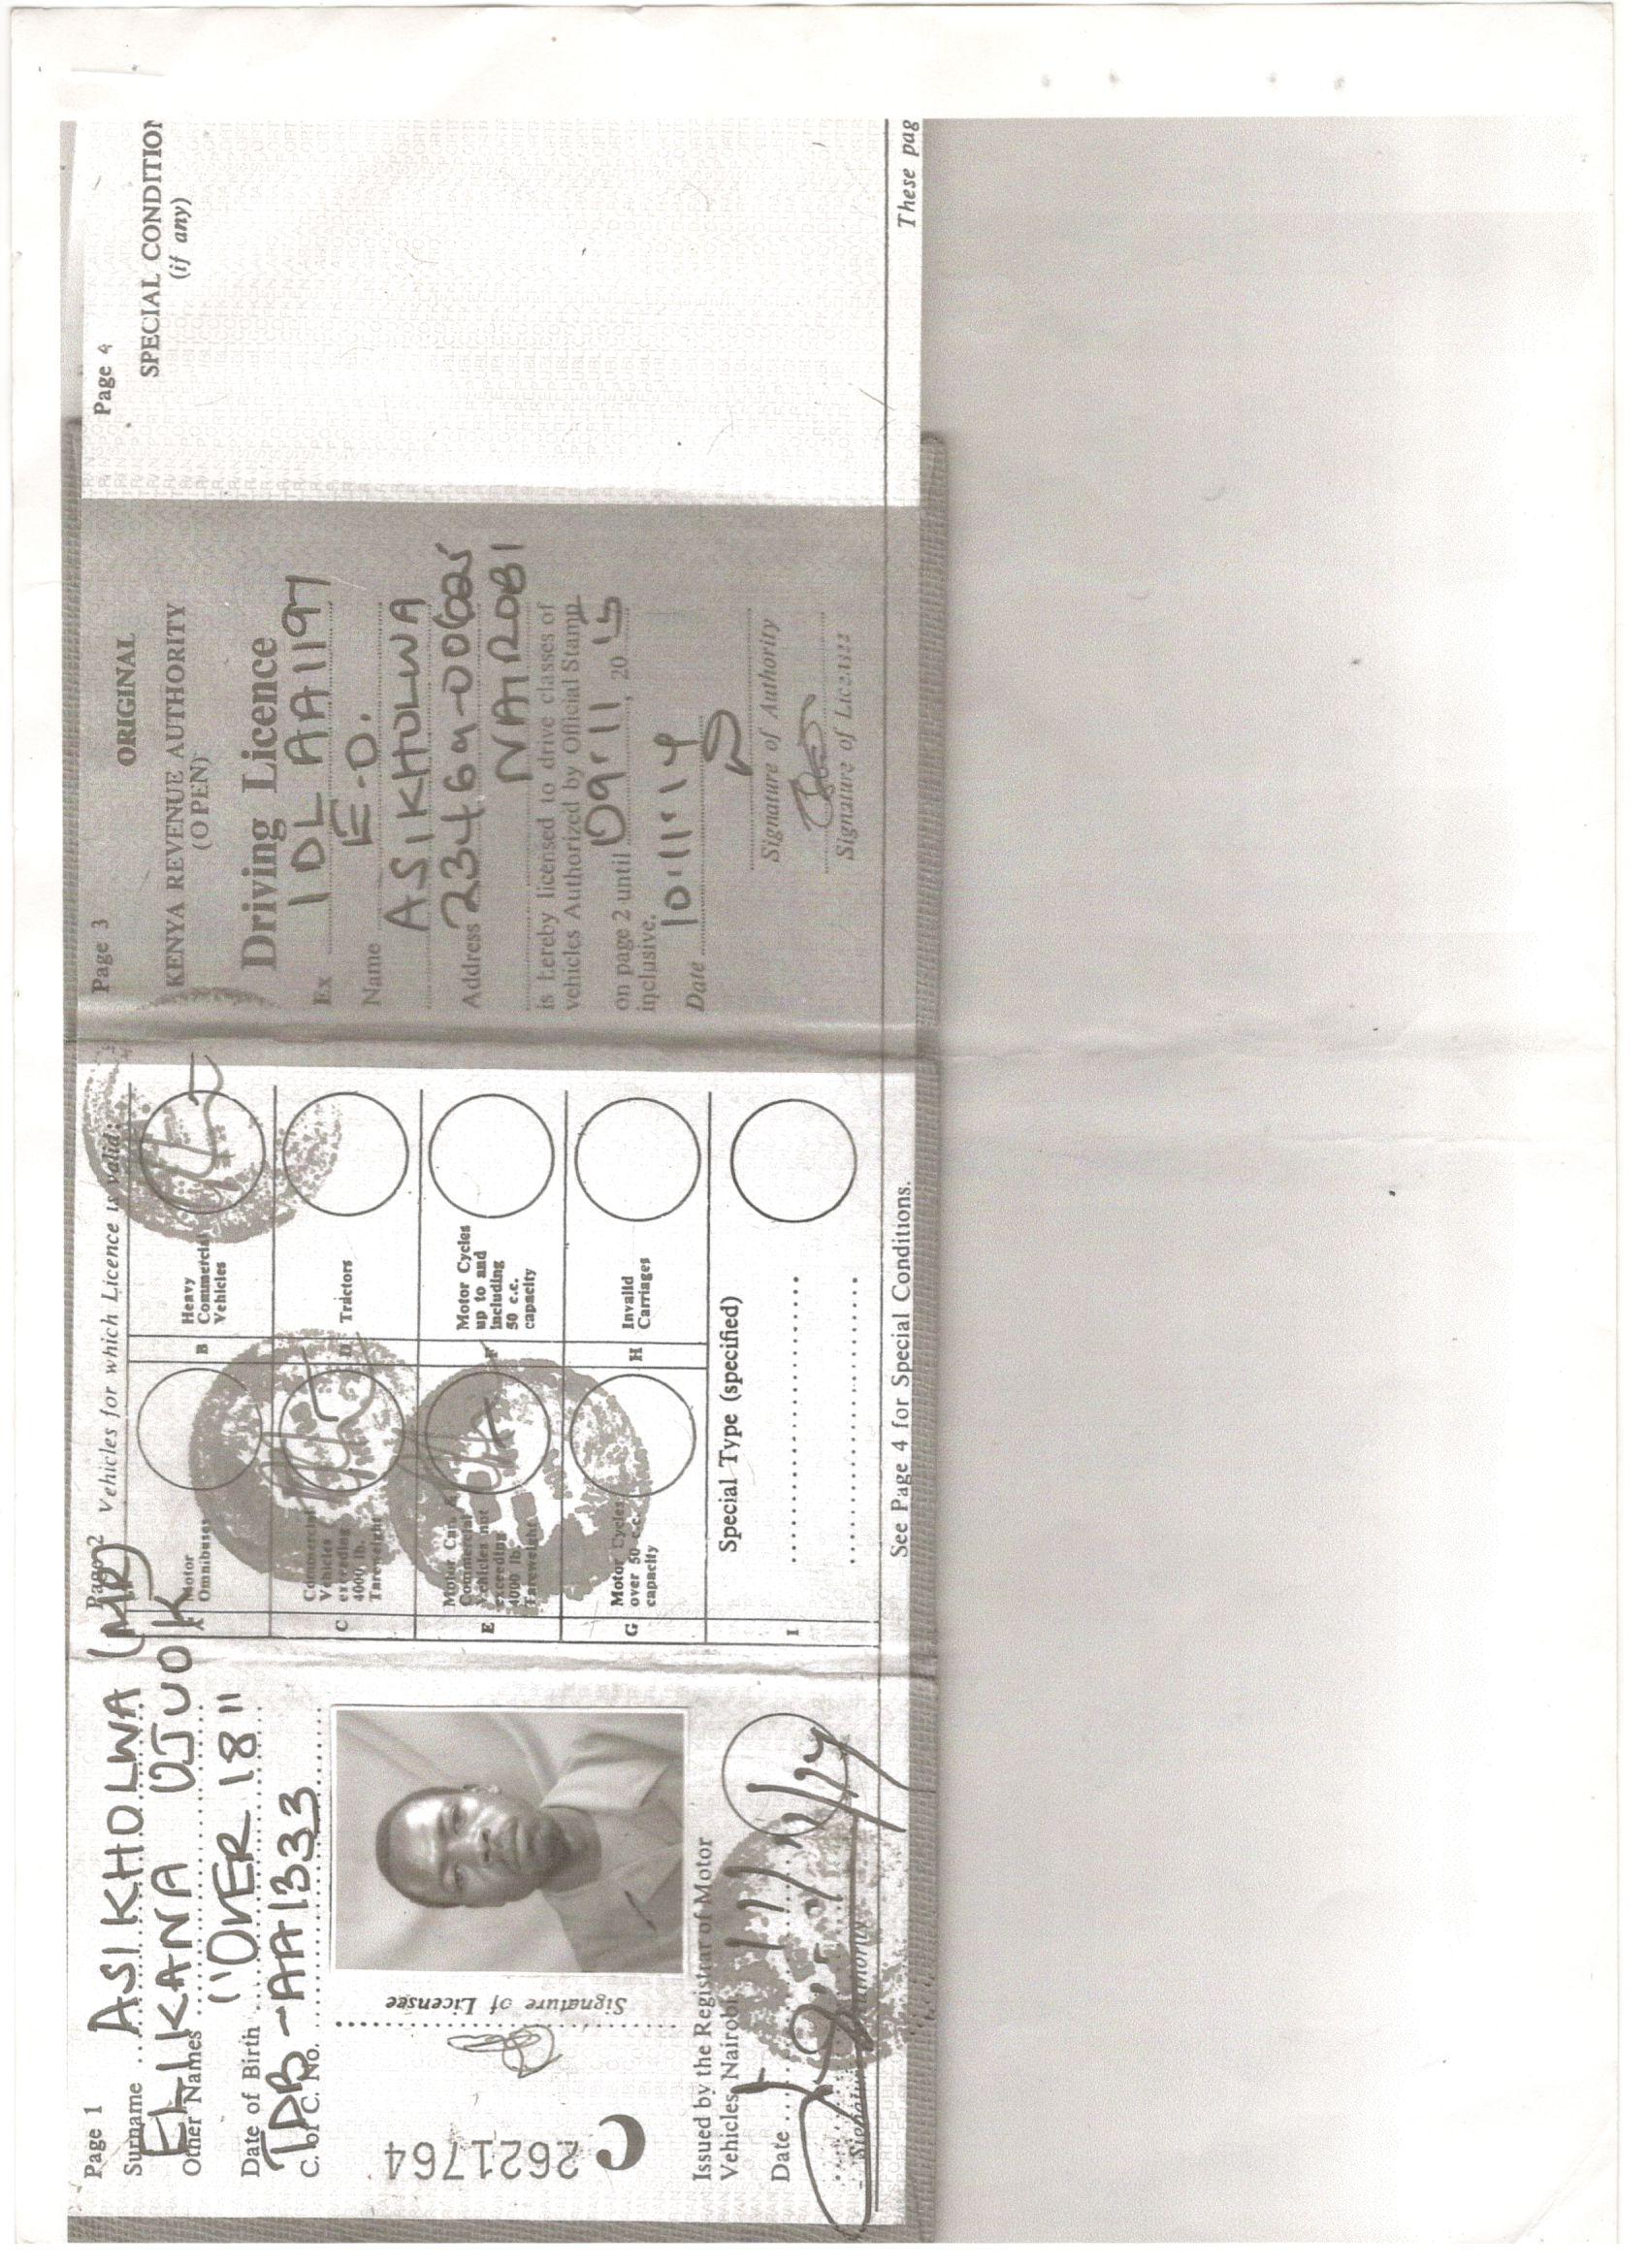 Page 1
Surname ASIKHOLWA (MR)
ELIKANA OJUOK
Other Names
Date of Birth "OVER 18"
IDB-AA1333
C. of C. No.
Signature of Licensee
C 2621764
Issued by the Registrar of Motor
Vehicles, Nairobi.
Date
Signature Authority
Page 2
Vehicles for which Licence is valid:
A Motor Omnibuses
B Heavy Commercial Vehicles
C Commercial Vehicles exceeding 4000 lb. Tareweight
D Tractors
E Motor Car Commercial Vehicles not exceeding 4000 lb. Tareweight
F Motor Cycles up to and including 50 c.c. capacity
G Motor Cycles over 50 c.c. capacity
H Invalid Carriages
I Special Type (specified)
See Page 4 for Special Conditions.
Page 3
ORIGINAL
KENYA REVENUE AUTHORITY
(OPEN)
Driving Licence
Ex IDL AA1197
Name E.O.
ASIKHOLWA
Address 23469-00625
NAIROBI
is hereby licensed to drive classes of
vehicles Authorized by Official Stamp
on page 2 until 09.11, 2015
inclusive.
Date 10.11.14
Signature of Authority
Signature of Licensee
Page 4
SPECIAL CONDITION
(if any)
These pag